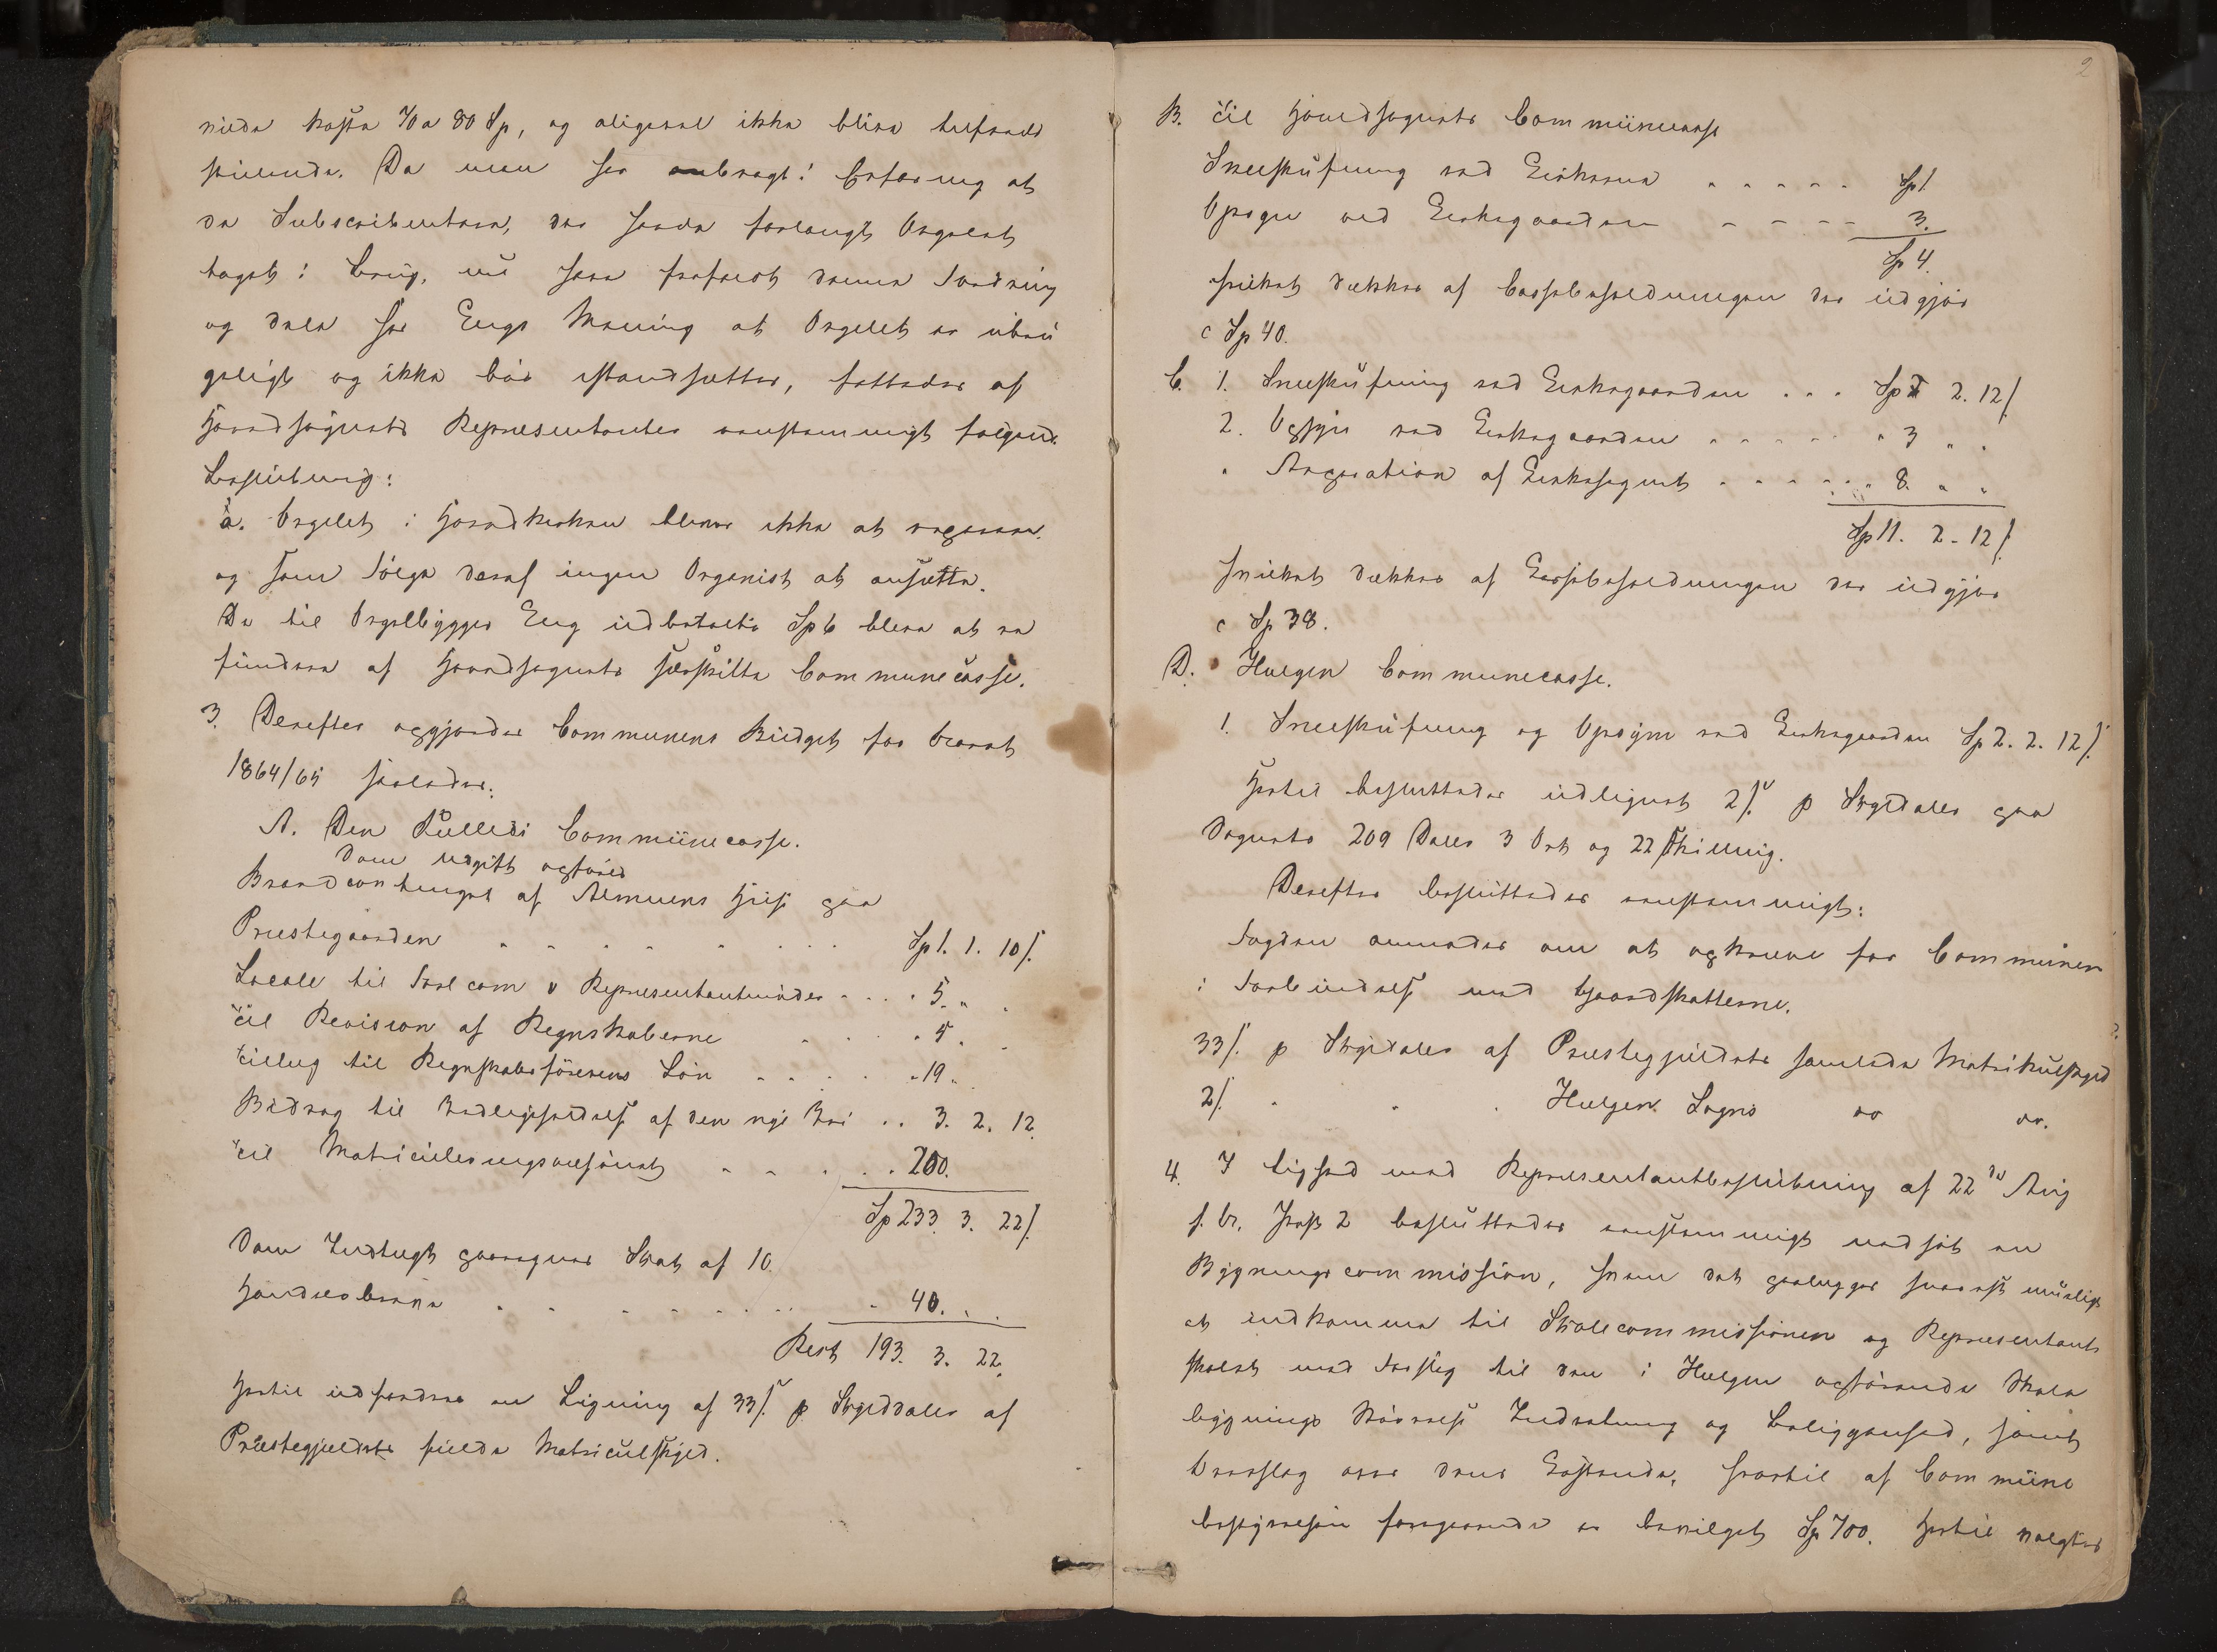 vilde koste 70 a 80 Sp, og aligevel ikke blive tilfreds
stillende. Da man har anbragt i Erfaring at
de Subscribentere, der havde forlangt Orgelet
taget i Brug, nu have frafaldt denne Fordring
og dele Hr Engs Mening at Orgelet er ubru
geligt og ikke bør istandsættes, fattedes af
Hovedsognets Repræsentanter eenstemmigt følgende
Beslutning:
a. Orgelet i Hovedkirken bliver ikke at reparere.
og som Følge deraf ingen Organist at ansætte.
De til Orgelbygger Eng udbetalte Sp 6 blive at re
fundere af Hovedsognets særskilte Communecasse.
3. Derefter opgjordes Communens Budget for Aaret
1864/65 saaledes:
A. Den Fælleds Communecasse.
Som Udgift opføres
Brandcontingent af Almuens Huse paa
Præstegaarden Sp 1. 1. 10 ß.
Locale til Forl com & Repræsentantmøder 5. " .
Til Revision af Regnskaberne 5. .
Tillæg til Regnskabsførerens Løn 19 "
Bidrag til Vedligeholdelse af den nye Vei 3. 2. 12
Til Matriculeringsvæsenet 200.
Sp 233. 3. 22 ß.
Som Indtægt paaregnes Skat af 10
Handlende 40. .
Rest 193. 3. 22.
Hertil udfordres en Ligning af 33 ß. p Skylddaler af
Præstegjeldets fulde Matriculskyld.
2
B. Til Hovedsognets Communecasse
Sneeskufning ved Kirkerne Sp 1
Opsyn ved Kirkegaarden 3.
Sp 4.
hvilket dækkes af Cassebeholdningen der udgjør
c Sp 40.
C. 1. Sneeskufning ved Kirkegaarden Sp 2. 12 ß
2. Opsyn ved Kirkegaarden " 3 " .
" Reparation af Kirkesognet 8. " "
Sp 11. 2 - 12 ß
hvilket dækkes af Cassebeholdningen der udgjør
c Sp 38.
D. Hælgen Communecasse.
1. Sneeskufning og Opsyn ved Kirkegaarden Sp 2. 2. 12 ß.
Hertil besluttedes udlignet 2 ß. p Skylddaler paa
Sognets 209 Daler 3 Ort og 22 Skilling.
Derefter besluttedes eenstemmigt:
Fogden anmodes om at opkræve for Communen
i Forbindelse med Gaardskatterne.
33 ß. p Skylddaler af Præstegjeldets samlede Matrikulskyld
2 ß. " " . Hælgen Sogns do do.
4. I Lighed med Repræsentantbeslutning af 22de Aug
f. A. Post 2 besluttedes eenstemmigt nedsat en
Bygningscommission, hvem det paalægges snarest muligt
at indkomme til Skolecommissionen og Repræsentant
skabet med Forslag til den i Hælgen opførende Skole
bygnings Størrelse Indretning og Beliggenhed, samt
Overslag over dens Kostende, hvortil af Commune
bestyrelsen foregaaende er bevilget Sp 700. Hertil valgtes